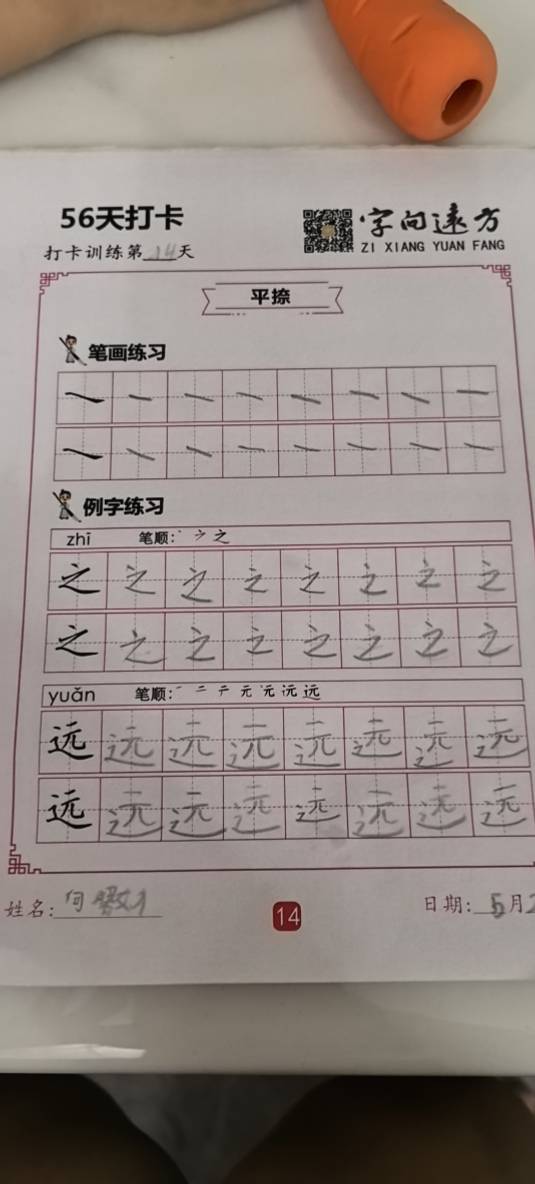 56天打卡
字向远方
打卡训练第14天
ZI XIANG YUAN FANG
平捺
笔画练习
例字练习
zhī 笔顺: 丶 ㇇ 之
之 之 之 之 之 之 之 之
之 之 之 之 之 之 之 之
yuǎn 笔顺: 一 二 テ 元 元 沅 远
远 远 远 远 远 远 远 远
远 远 远 远 远 远 远 远
姓名: 何
14
日期: 5月2